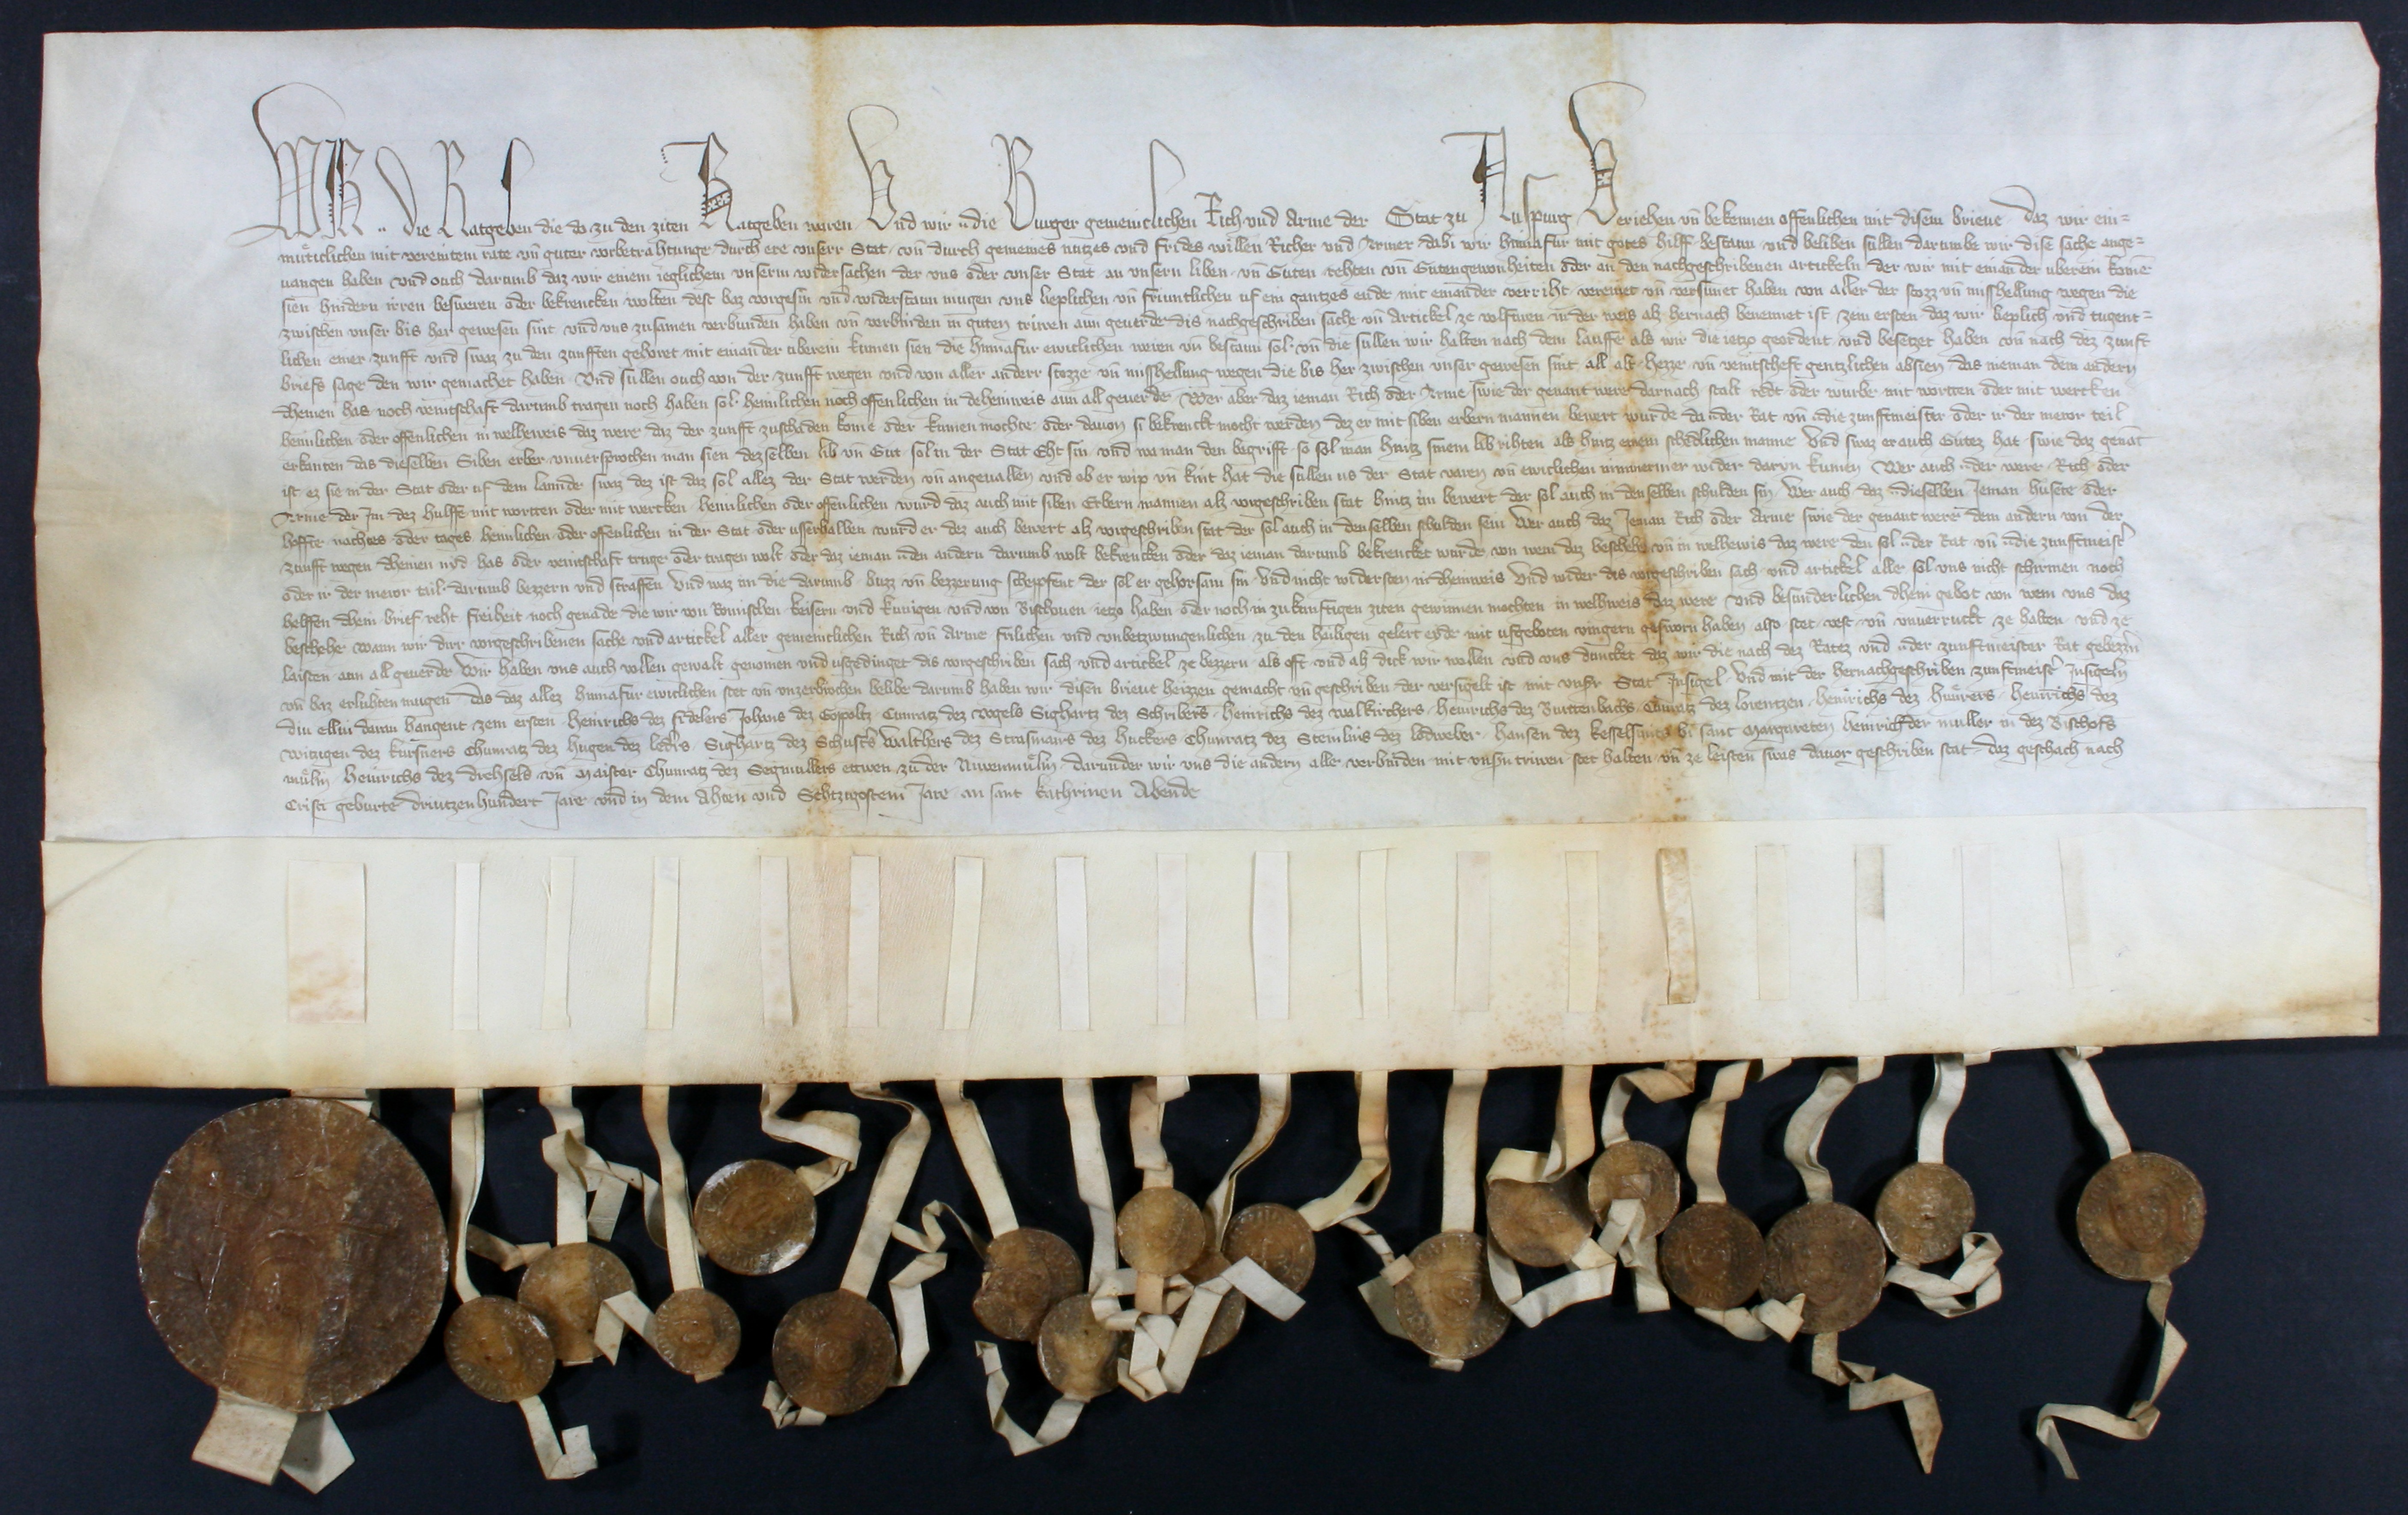 WIR .. die Ratgeben die do zu den ziten Ratgeben waren Und wir .. die Burger gemeinclichen Rich und Arme der Stat zu Auspurg Veriehen vn̄ bekennen offenlichen mit disem brieue daz wir ein=
muͤticlichen mit vereintem rate vn̄ guter vorbetrahtunge durch ere vnserr Stat vn̄ durch gemeines nutzes vnd frides willen Richer vnd Armer dabi wir hinnafur mit gotes hilff bestann vnd beliben sullen darumbe wir dise sache ange=
uangen haben vnd ouch darumb daz wir einem ieglichem vnserm widersachen der vns oder vnser Stat an vnsern liben vn̄ Guten rehten vn̄ Gutengewonheiten oder an den nachgeschribenen artickeln der wir mit einander vberein komē
sien hindern irren besweren oder bekrencken wolten dest baz vorgesin vnd widerstann mugen vns lieplichen vn̄ friuntlichen uf ein gantzes ende mit einander verriht vereinet vn̄ versunet haben von aller der stozz vn̄ misshellung wegen die
zwischen vnser bis her gewesen sint vnd vns zusamen verbunden haben vn̄ verbinden in guten triwen ann geuerde dis nachgeschriben sache vn̄ Artickel ze volfuren in der weis als hernach benennet ist zem ersten daz wir lieplich vnd tugent=
lichen einer zunfft vnd swaz zu den zunfften gehoret mit einander vberein kumen sien die hinnafur ewiclichen weren vn̄ bestann sol vn̄ die sullen wir halten nach dem lauffe als wir die ietzo geordent vnd besetzet haben vn̄ nach dez zunft
briefs sage den wir gemachet haben Und sullen ouch von der zunfft wegen vnd von aller anderr stozze vn̄ misshellung wegen die bis her zwischen vnser gewesen sint all alt hezze vn̄ veintscheft gentzlichen absien das nieman dem andern
dheinen has noch veintschaft darumb tragen noch haben sol heimlichen noch offenlichen in deheinweis ann all geuerde Wer aber daz ieman Rich oder Arme swie der genant were darnach stalt redt oder wurbe mit wortten oder mit wercken
heimlichen oder offenlichen in welheweis daz were daz der zunft zuschaden kome oder kumen mochte oder dauon si bekrenckt mocht werden dez er mit siben erbern mannen bewert wurde da .. der Rat vn̄ .. die zunfftmeister oder ir der meror teil
erkanten das dieselben Siben erber vnuersprochen man sien dezselben lib vn̄ Gut sol in der Stat Eht sin vnd wa man den begrifft so sol man hintz sinem lib rihten als hintz einem schedlichen manne Und swaz er auch Gutez hat swie daz genāt
ist ez sie in der Stat oder uf dem lannde swaz dez ist daz sol allez der Stat werden vn̄ angeuallen vnd ob er wip vn̄ kint hat die sullen us der Stat varen vn̄ ewiclichen nimmermer wider darin kumen Wer auch .. der were Rich oder
Arme der Im dez hulffe mit wortten oder mit wercken heimlichen oder offenlichen wurd daz auch mit siben Erbern mannen alz vorgeschriben stat hintz im bewert der sol auch in denselben schulden sin Wer auch daz .. dieselben Ieman husete oder
hoffte nachtes oder tages heimlichen oder offenlichen in der Stat oder usserhalben wurd er dez auch bewert alz vorgeschriben stat der sol auch in denselben schulden sein Wer auch daz Ieman Rich oder Arme swie der genant were dem andern von der
zunfft wegen dheinen nyd has oder veintschaft truge oder tragen wolt oder daz ieman .. den andern darumb wolt bekrencken oder daz ieman darumb bekrencket wurde von wem daz beschehe vn̄ in welhewis daz were den sol .. der Rat vn̄ .. die zunfftmeist̄
oder ir der meror tail darumb bezzern vnd straffen Und waz im die darumb buzz vn̄ bezzerung schepffent der sol er gehorsam sin Und nicht widersten in dheinweis Und wider dis vorgeschriben sach vnd artickel aller sol vns nicht schirmen noch
helffen dhein brief reht freiheit noch genade die wir von Romischen keisern vnd kunigen vnd von Bischouen ietzo haben oder noch in zukunftigen ziten gewinnen mochten in welhweis daz were Und besunderlichen dhein gebot von wem vns daz
beschehe Wann wir dirr vorgeschribenen sache vnd artickel aller gemeinclichen Rich vn̄ Arme frilichen vnd vnbetzwungenlichen zu den hailigen gelert eyde mit ufgeboten vingern gesworn haben also stet vest vn̄ vnuerruckt ze halten vnd ze
laisten ann all geuerde Wir haben vns auch vollen gewalt genomen vnd usgedinget dis vorgeschriben sach vnd artickel ze bezzern als offt vnd als dick wir wollen vnd vns duncket daz wir die nach dez Ratez vnd .. der zunftmeister Rat gebezz̄n
vn̄ baz erluhten mugen Das daz allez hinnafur ewiclichen stet vn̄ vnzerbrochen belibe darumb haben wir disen brieue heizzen gemacht vn̄ geschriben der versigelt ist mit vnsr̄ Stat Insigel Und mit der hernachgeschriben zunftmeist̄ Insigeln
diu elliu daran hangent zem ersten Heinrichs dez fidelers Johans dez Goppoltz Cunratz dez Vogels Sighartz dez Schribers Heinrichs dez Walkirchers Heinrichs dez Burttenbachs Chunratz dez Lorentzen Heinrichs dez Hueͤrers Heinrichs dez
Witzigen dez kursners Chunratz dez Hugen dez led̄rs Sighartz dez Schust̄s Walthers dez Strasmairs dez Huckers Chunratz dez Steinlins dez lodweber Hansen dez kesselsmitz bi sant Margareten Heinrich der muller in dez Bischofs
muͤlin Heinrichs dez Drehsels vn̄ Maister Chunratz dez Segmullers ettwen zu der Niwenmuͤlin darunder wir vns die andern alle verbinden mit vnsn̄ triwen stet halten vn̄ ze leisten swas dauor geschriben stat daz geschach nach
Cristi geburte driutzenhundert Jare vnd in dem Ahten vnd Sehtzigostem Jare an sant kathrinen Abende